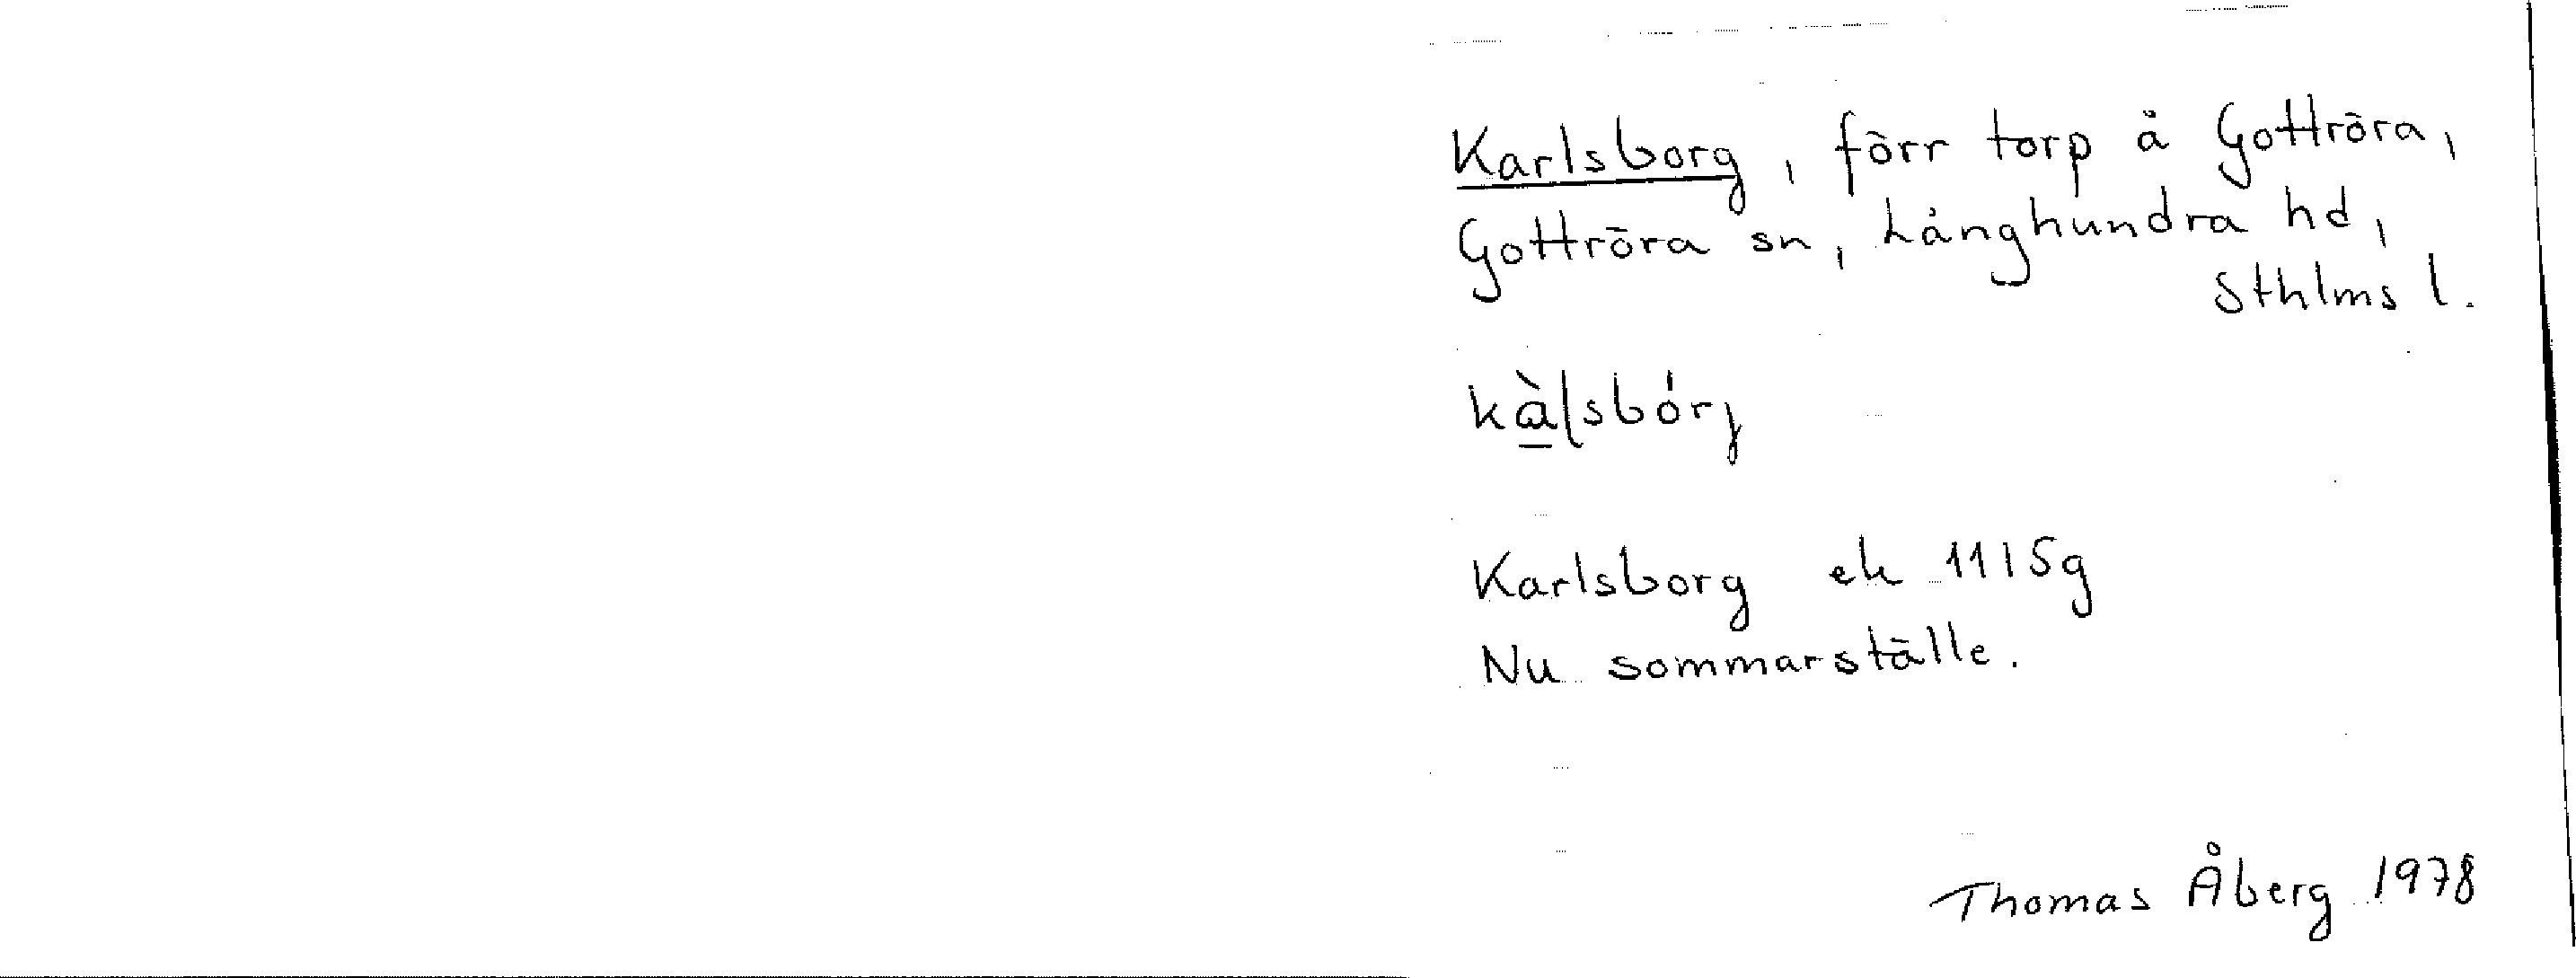 Karlsborg, förr torp å Gottröra,
Gottröra sn, Långhundra hd,
Sthlms l.
kὰlsbórj
Karlsborg ek 11I5g
Nu sommarställe.
Thomas Åberg 1978